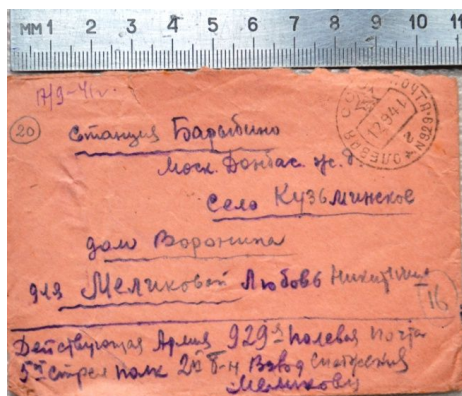 мм 1 2 3 4 5 6 7 8 9 10 11
17/9-41г.
ПОЛЕВАЯ ПОЧТА N929
12 9 41
20
станция Барыбино
Моск. Донбас. ж. д.
Село Кузьминское
дом Воронина
для Меликовой Любовь Никитични
16
Действующая Армия 929я полевая почта
5й стрел полк 2й б-н Взвод Снабжения
Меликову